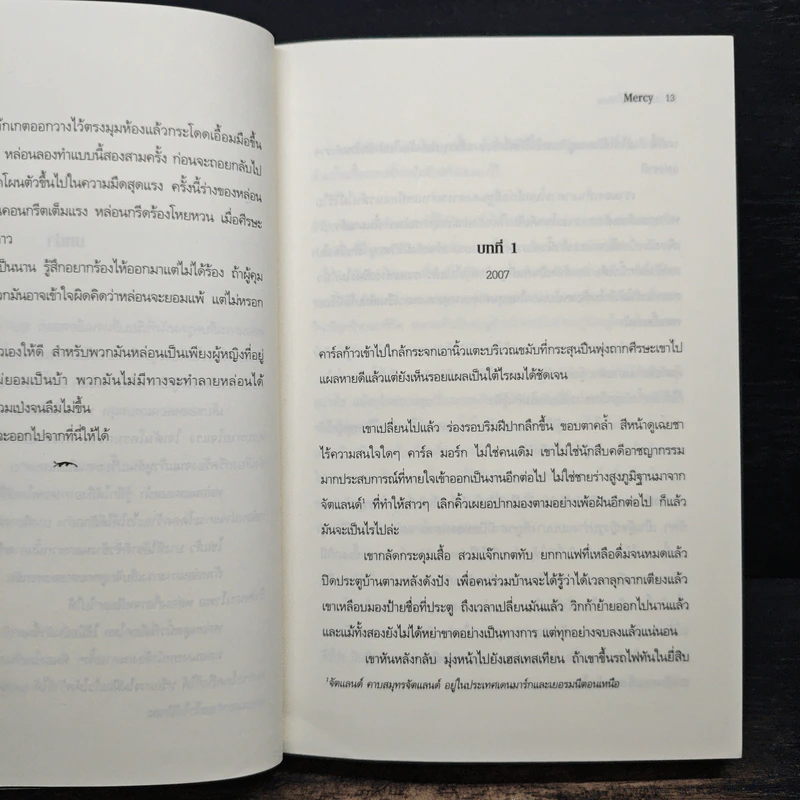 ักเกตออกวางไว้ตรงมุมห้องแล้วกระโดดเอื้อมมือขึ้น
หล่อนลองทำแบบนี้สองสามครั้ง ก่อนจะถอยกลับไป
โผนตัวขึ้นไปในความมืดสุดแรง ครั้งนี้ร่างของหล่อน
คอนกรีตเต็มแรง หล่อนกรีดร้องโหยหวน เมื่อศีรษะ
าว
ป็นนาน รู้สึกอยากร้องไห้ออกมาแต่ไม่ได้ร้อง ถ้าผู้คุม
วกมันอาจเข้าใจผิดคิดว่าหล่อนจะยอมแพ้ แต่ไม่หรอก
ัวเองให้ดี สำหรับพวกมันหล่อนเป็นเพียงผู้หญิงที่อยู่
ม่ยอมเป็นบ้า พวกมันไม่มีทางจะทำลายหล่อนได้
วมเป่งจนลืมไม่ขึ้น
ะออกไปจากที่นี่ให้ได้
Mercy 13
บทที่ 1
2007
คาร์ลก้าวเข้าไปใกล้กระจกเอานิ้วแตะบริเวณขมับที่กระสุนปืนพุ่งถากศีรษะเขาไป
แผลหายดีแล้วแต่ยังเห็นรอยแผลเป็นใต้ไรผมได้ชัดเจน
เขาเปลี่ยนไปแล้ว ร่องรอบริมฝีปากลึกขึ้น ขอบตาคล้ำ สีหน้าดูเฉยชา
ไร้ความสนใจใดๆ คาร์ล มอร์ก ไม่ใช่คนเดิม เขาไม่ใช่นักสืบคดีอาชญากรรม
มากประสบการณ์ที่หายใจเข้าออกเป็นงานอีกต่อไป ไม่ใช่ชายร่างสูงภูมิฐานมาจาก
จัตแลนด์¹ ที่ทำให้สาวๆ เลิกคิ้วเผยอปากมองตามอย่างเพ้อฝันอีกต่อไป ก็แล้ว
มันจะเป็นไรไปล่ะ
เขากลัดกระดุมเสื้อ สวมแจ๊กเกตทับ ยกกาแฟที่เหลือดื่มจนหมดแล้ว
ปิดประตูบ้านตามหลังดังปัง เพื่อคนร่วมบ้านจะได้รู้ว่าได้เวลาลุกจากเตียงแล้ว
เขาเหลือบมองป้ายชื่อที่ประตู ถึงเวลาเปลี่ยนมันแล้ว วิกก้าย้ายออกไปนานแล้ว
และแม้ทั้งสองยังไม่ได้หย่าขาดอย่างเป็นทางการ แต่ทุกอย่างจบลงแล้วแน่นอน
เขาหันหลังกลับ มุ่งหน้าไปยังเฮสเทสเทียน ถ้าเขาขึ้นรถไฟทันในยี่สิบ
¹จัตแลนด์ คาบสมุทรจัตแลนด์ อยู่ในประเทศเดนมาร์กและเยอรมนีตอนเหนือ